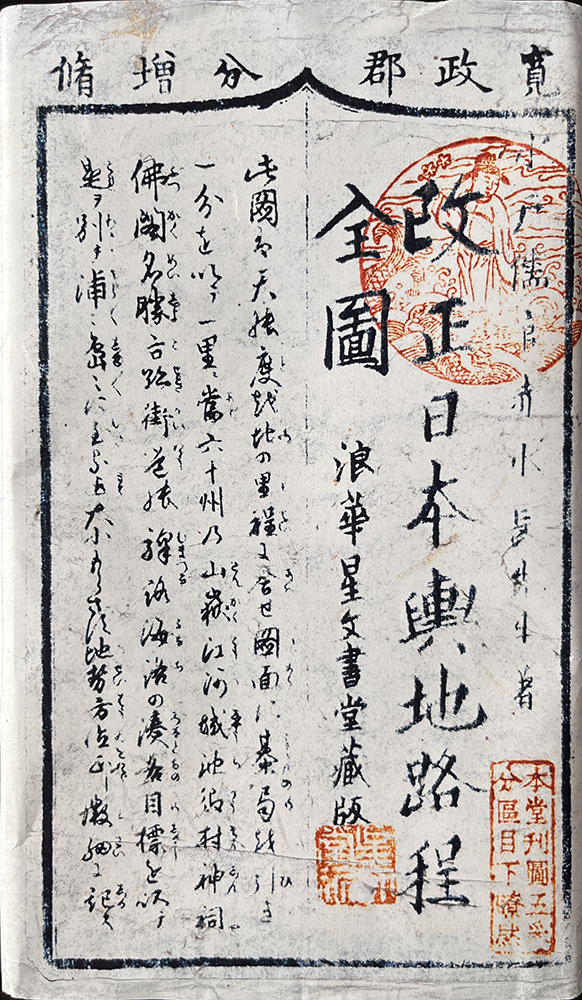 寛政郡分増脩
水戸儒官赤水長先生著
改正日本輿地路程
全圖
浪華星文書堂藏版
本堂刊圖五彩
分區目下瞭然
此圖は天 度越地の里程に合せ圖面に棊局越引き
一分を以て一里に當六十州乃山嶽江河城池郷村神祠
佛閣名勝古跡街道 驛路海 の湊 目標を以て
是ヲ別チ浦々島々に至る 大小 地勢方位 細に記ス